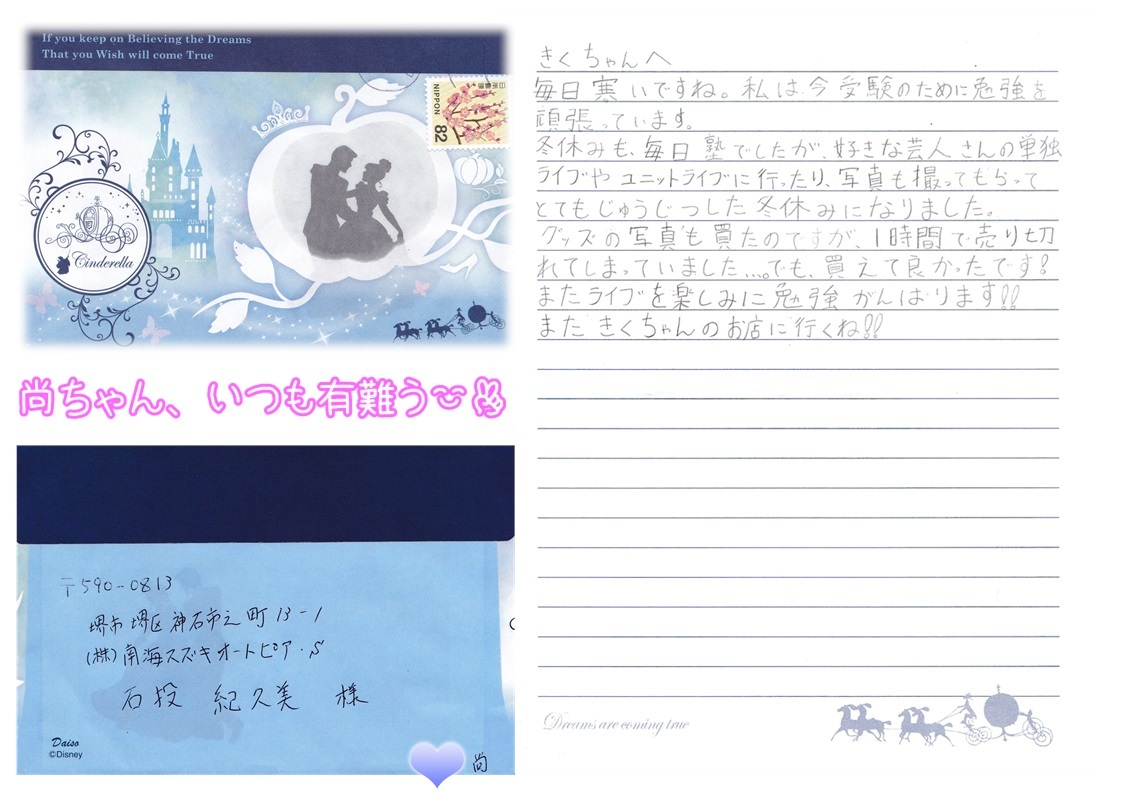 If you keep on Believing the Dreams
That you Wish will come True
NIPPON
82
日本郵便
Cinderella
尚ちゃん、いつも有難う
〒590-0813
堺市堺区神石市之町13-1
(株)南海スズキオートピア・S
石投 紀久美 様
Daiso
©Disney
尚
きくちゃんへ
毎日寒いですね。私は今受験のために勉強を
頑張っています。
冬休みも、毎日塾でしたが、好きな芸人さんの単独
ライブやユニットライブに行ったり、写真も撮ってもらって
とてもじゅうじつした冬休みになりました。
グッズの写真も買たのですが、1時間で売り切
れてしまっていました...。でも、買えて良かったです!
またライブを楽しみに勉強がんばります!!
またきくちゃんのお店に行くね!!
Dreams are coming true